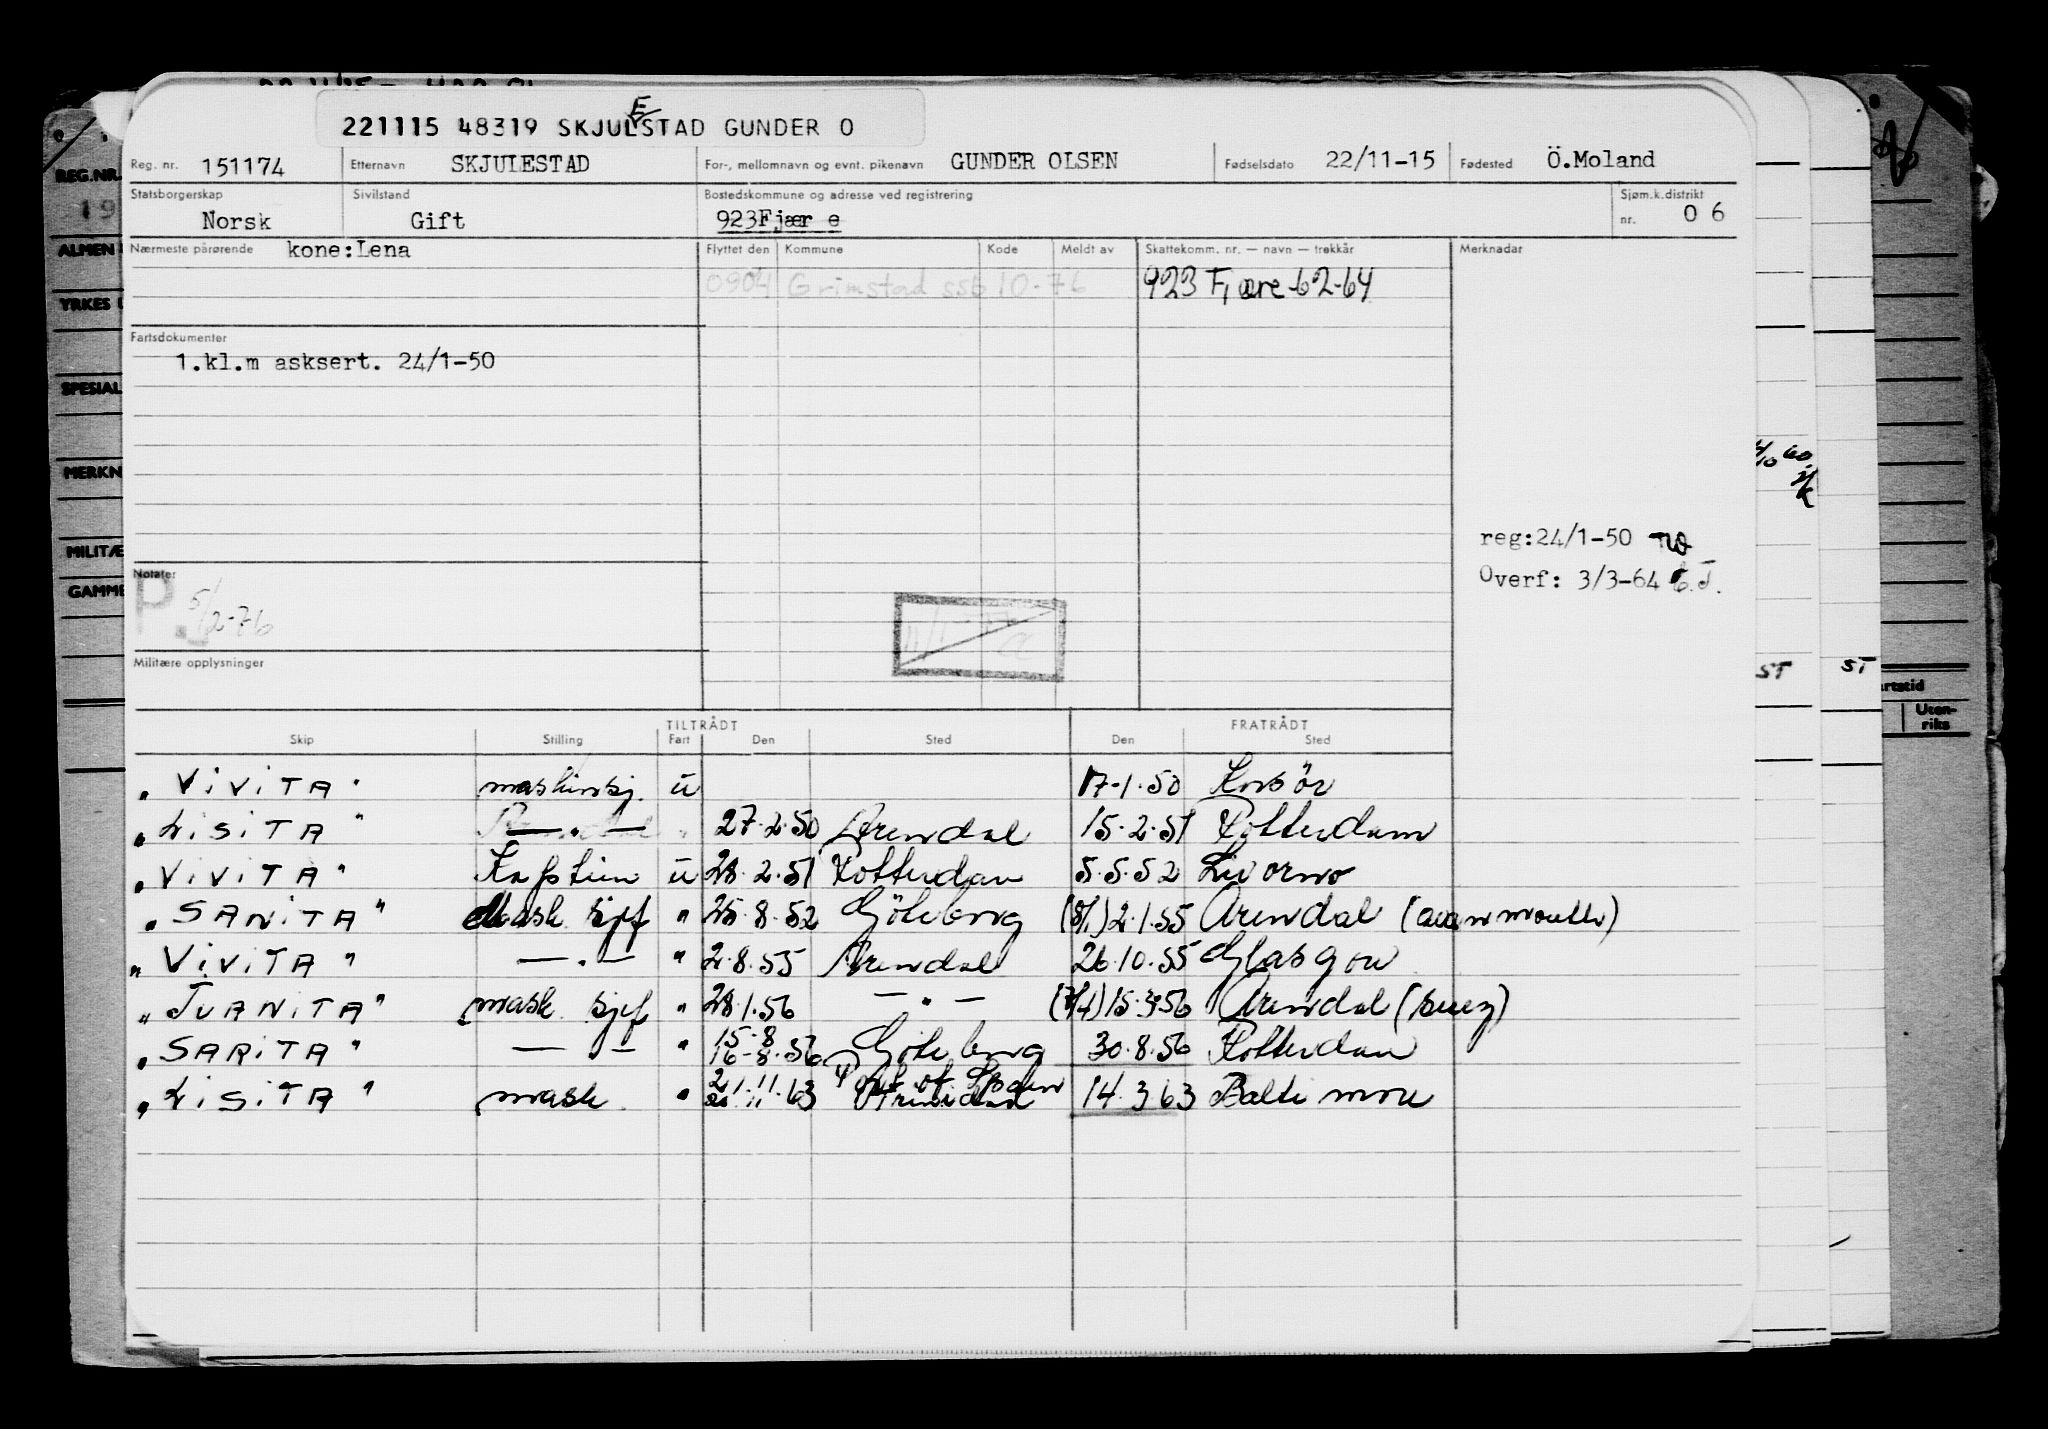 221115 48319 SKJULSTAD GUNDER O
E
Reg. nr. 151174 Etternavn SKJULESTAD For-, mellomnavn og evnt. pikenavn GUNDER OLSEN Fødselsdato 22/11-15 Fødested Ö.Moland
Statsborgerskap Sivilstand Bostedskommune og adresse ved registrering Sjøm.k.distrikt
Norsk Gift 923Fjær e nr. 0 6
Nærmeste pårørende kone:Lena Flyttet den Kommune Kode Meldt av Skattekomm. nr. — navn — trekkår Merknadar
0904 Grimstad ssb 10-76 923 Fjære 62-64
Fartsdokumenter
1.kl.m asksert. 24/1-50
reg:24/1-50
Overf: 3/3-64
Notater
P. 5/2-76
Militære opplysninger
TILTRÅDT FRATRÅDT
Skip Stilling Fart Den Sted Den Sted
"VIVITA" maskinsj. u 17-1.50 Korsör
"LISITA" —„— " 27.2.50 Arendal 15.2.51 Rotterdam
"VIVITA" Kaptein u 28.2.51 Rotterdam 5.5.52 Livorno
"SANITA" Mask. sjef " 25.8.52 Göteborg (8/1) 2.1.55 Arendal (avonmouth)
"VIVITA" —„— " 2.8.55 Arendal 26.10.55 Glasgow
"JUANITA" mask. sjef " 28.1.56 —„— 15.3.56 Arendal (suez)
"SARITA" —„— " 15-8 16-8.56 Göteborg 30.8.56 Rotterdam
"LISITA" mask. " 21.11.63 Port of Spain Trinidad 14.3.63 Baltimore
REG.NR.
19
ALMEN
YRKES
SPESIAL
MERKN
MILITÆ
GAMME
ST
ST
rtstid
Uten-
riks